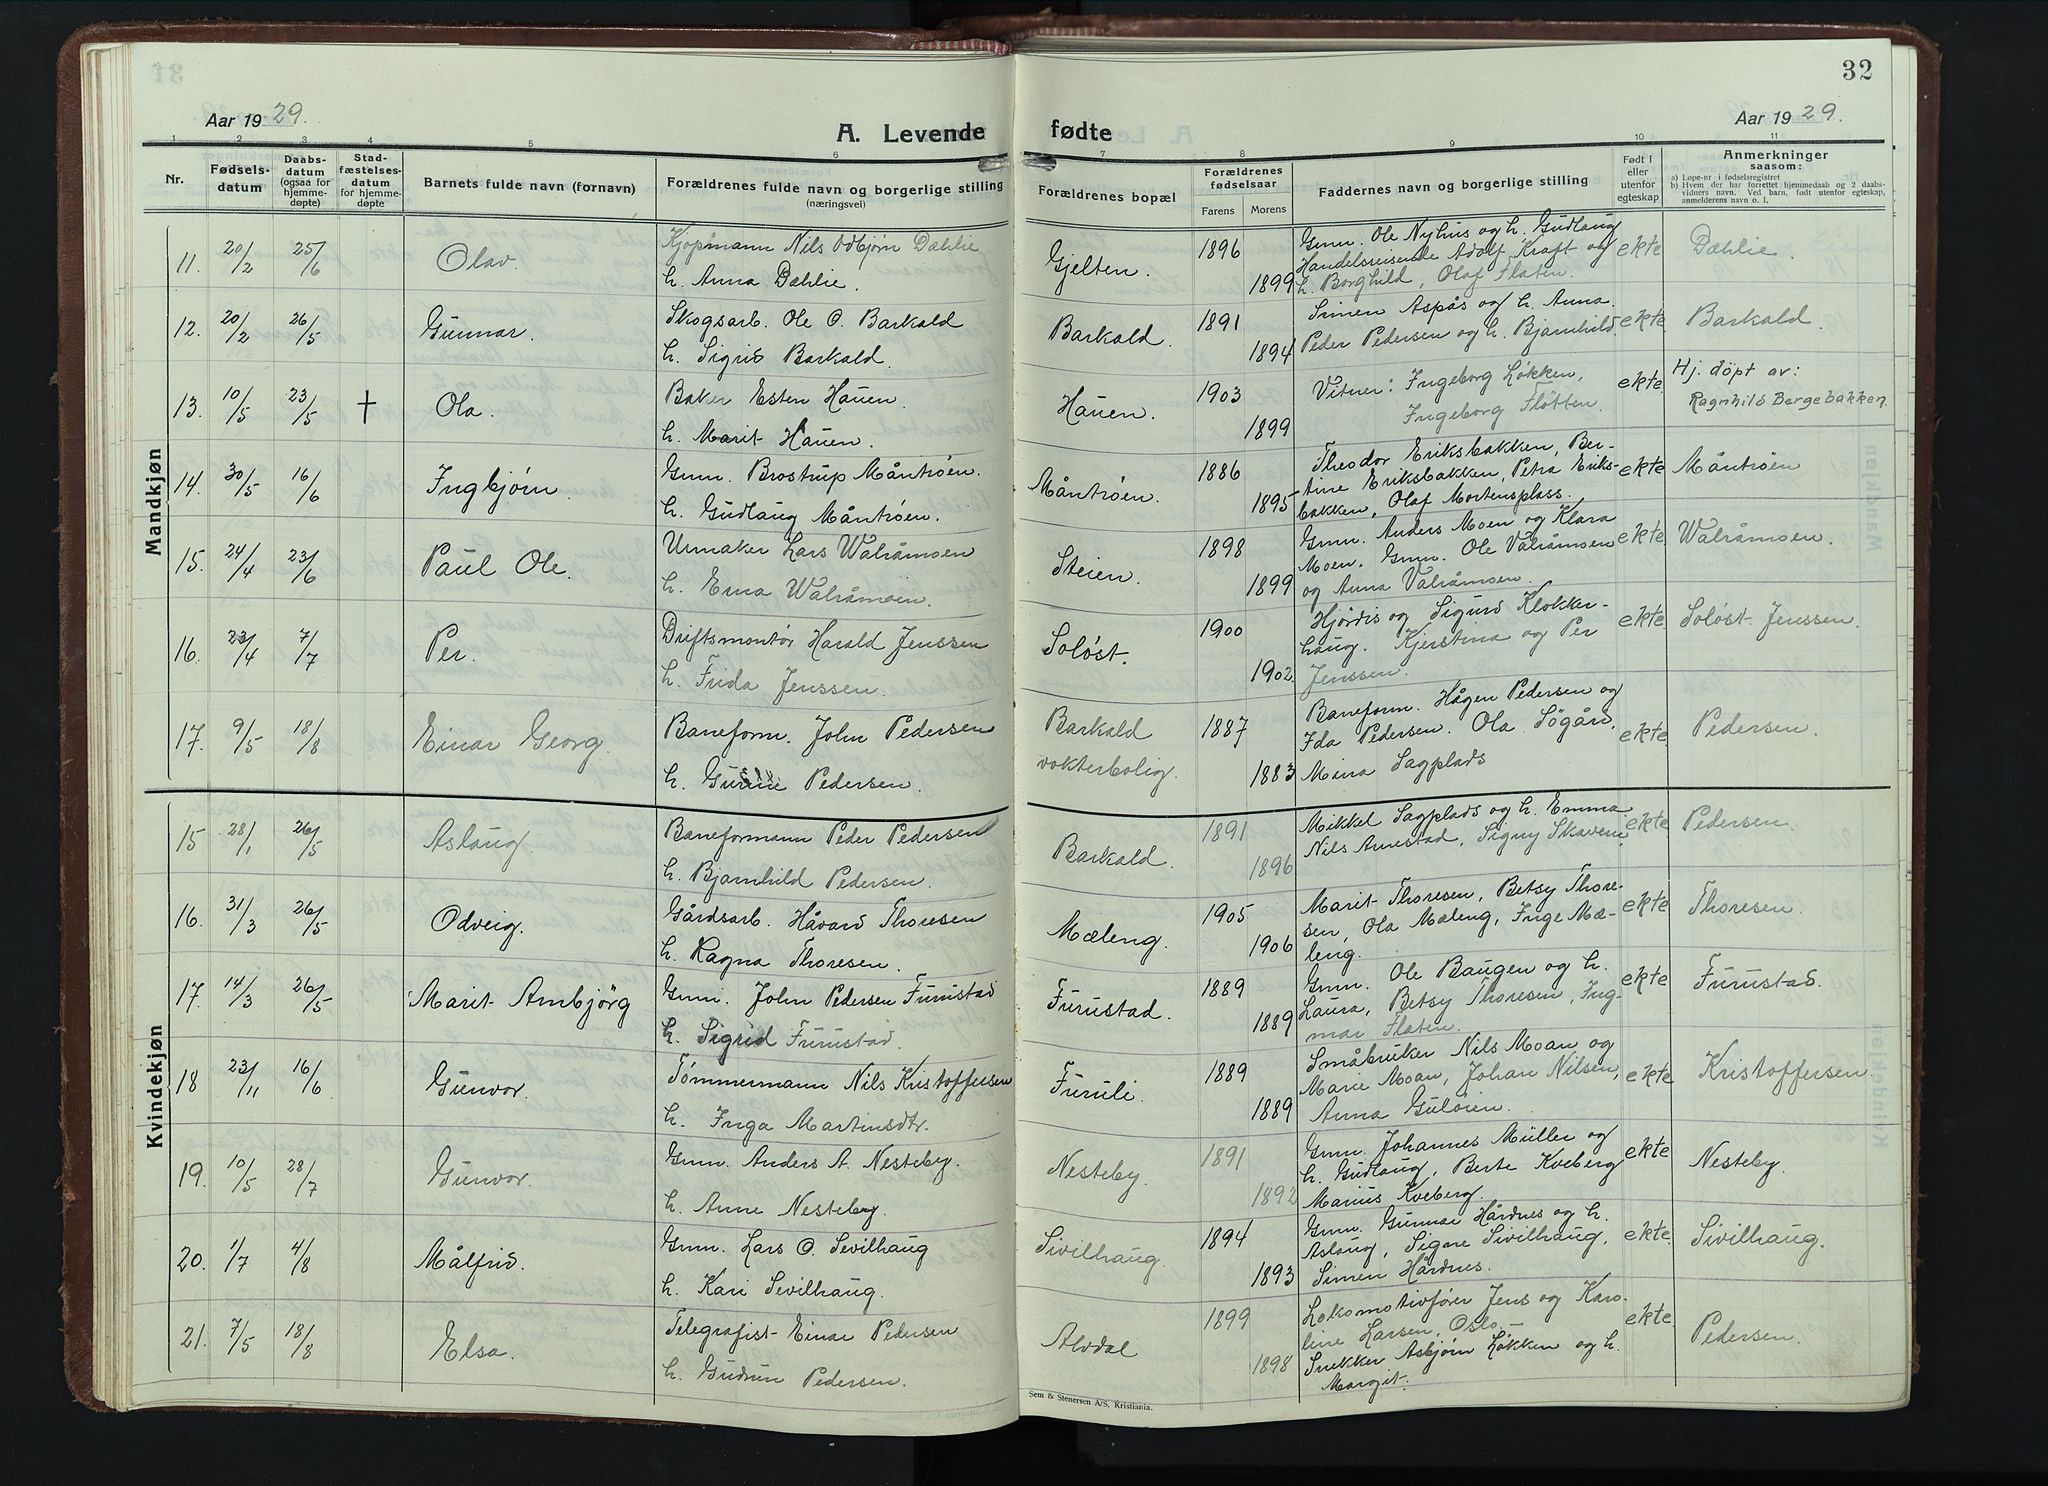 32
Aar 1929.
A. Levende fødte
Aar 1929.
1 2 3 4 5 6 7 8 9 10 11
Nr.
Fødsels-
datum
Daabs-
datum
(ogsaa for
hjemme-
døpte)
Stad-
fæstelses-
datum
for hjemme-
døpte
Barnets fulde navn (fornavn)
Forældrenes fulde navn og borgerlige stilling
(næringsvei)
Forældrenes bopæl
Forældrenes
fødselsaar
Farens Morens
Faddernes navn og borgerlige stilling
Født i
eller
utenfor
egteskap
Anmerkninger
saasom:
a) Løpe-nr i fødselsregistret
b) Hvem der har forrettet hjemmedaab og 2 daabs-
vidners navn. Ved barn, født utenfor egteskap,
anmelderens navn o. l.
Mandkjøn
11. 20/2 25/6 Olav. Kjøpmann Nils Odbjørn Dæhlie
h. Anna Dæhlie.
Gjelten. 1896 1899
Gmn. Ole Nyhus og h. Gudlaug
Handelsreisende Adolf Kraft og
h. Borghild, Olaf Flaten.
ekte Dæhlie.
12. 20/2 26/5 Gunnar. Skogsarb. Ole O. Barkald
h. Sigrid Barkald.
Barkald. 1891 1894
Simen Aspås og h. Anna.
Peder Pedersen og h. Bjarnhild.
ekte Barkald.
13. 10/5 23/5 † Ola. Baker Esten Hauen.
h. Marit Hauen.
Hauen. 1903 1899
Vitner: Ingeborg Løkken,
Ingeborg Fløtten.
ekte. Hj. döpt av:
Ragnhild Bergebakken.
14. 30/5 16/6 Ingbjørn. Gmn. Brostrup Måntrøen.
h. Gudlaug Måntrøen.
Måntrøen. 1886 1895
Theodor Eriksbakken, Ber-
tine Eriksbakken, Petra Eriks-
bakken, Olaf Mortensplass.
ekte. Måntrøen
15. 24/4 23/6 Paul Ole. Urmaker Lars Walråmoen
h. Erna Walråmoen.
Steien. 1898 1899
Gmn. Anders Moen og Klara
Moen. Gmn. Ole Valråmoen
og Anna Valråmoen.
ekte. Walråmoen.
16. 23/4 7/7 Per. Driftsmontör Harald Jenssen
h. Frida Jenssen.
Soløst. 1900 1902
Hjørdis og Sigurd Klokker-
haug. Kjerstina og Per
Jenssen.
ekte Soløst. Jenssen.
17. 9/5 18/8 Einar Georg. Baneform. John Pedersen
h. Gurine Pedersen.
Barkald
vokterbolig. 1887 1883
Baneform. Hågen Pedersen og
Ida Pedersen. Ola Søgård,
Mina Sagplads
ekte. Pedersen.
Kvindekjøn
15 28/1 26/5 Aslaug. Baneformann Peder Pedersen
h. Bjarnhild Pedersen.
Barkald. 1891 1896
Mikkel Sagplads og h. Emma
Nils Arnestad, Signy Skavern
ekte. Pedersen.
16. 31/3 26/5 Odveig. Gårdsarb. Håvard Thoresen
h. Ragna Thoresen.
Mæleng. 1905 1906
Marit Thoresen, Betsy Thore-
sen, Ola Mæleng, Inge Mæ-
leng.
ekte. Thoresen.
17. 14/3 26/5 Marit Arnbjörg Gmn. John Pedersen Furustad
h. Sigrid Furustad.
Furustad. 1889 1889
Gmn. Ole Baugen og h.
Laura, Betsy Thoresen, Ing-
mar Flaten.
ekte Furustad.
18 23/11 16/6 Gunvor. Tømmermann Nils Kristoffersen
h. Inga Martinsdtr.
Furuli. 1889 1889
Småbruker Nils Moan og
Marie Moan, Johan Nilsen,
Anna Guløien.
ekte. Kristoffersen
19. 10/5 28/7 Gunvor. Gmn. Anders A. Nesteby.
h. Anne Nesteby.
Nesteby. 1891 1892
Gmn. Johannes Müller og
h. Gudlaug, Berte Kveberg
Marius Kveberg.
ekte Nesteby.
20. 1/7 4/8 Målfrid. Gmn. Lars O. Sivilhaug
h. Kari Sivilhaug.
Sivilhaug. 1894 1893
Gmn. Gunnar Hårdnes og h.
Aslaug, Signe Sivilhaug,
Simen Hårdnes.
ekte. Sivilhaug.
21. 7/5 18/8 Elsa. Telegrafist Einar Pedersen
h. Gudrun Pedersen.
Alvdal 1899 1898
Lokomotivfører Jens og Karo-
line Larsen, Oslo. –
Snekker Asbjørn Løkken og h.
Margit.
ekte. Pedersen.
Sem & Stenersen A/S, Kristiania.